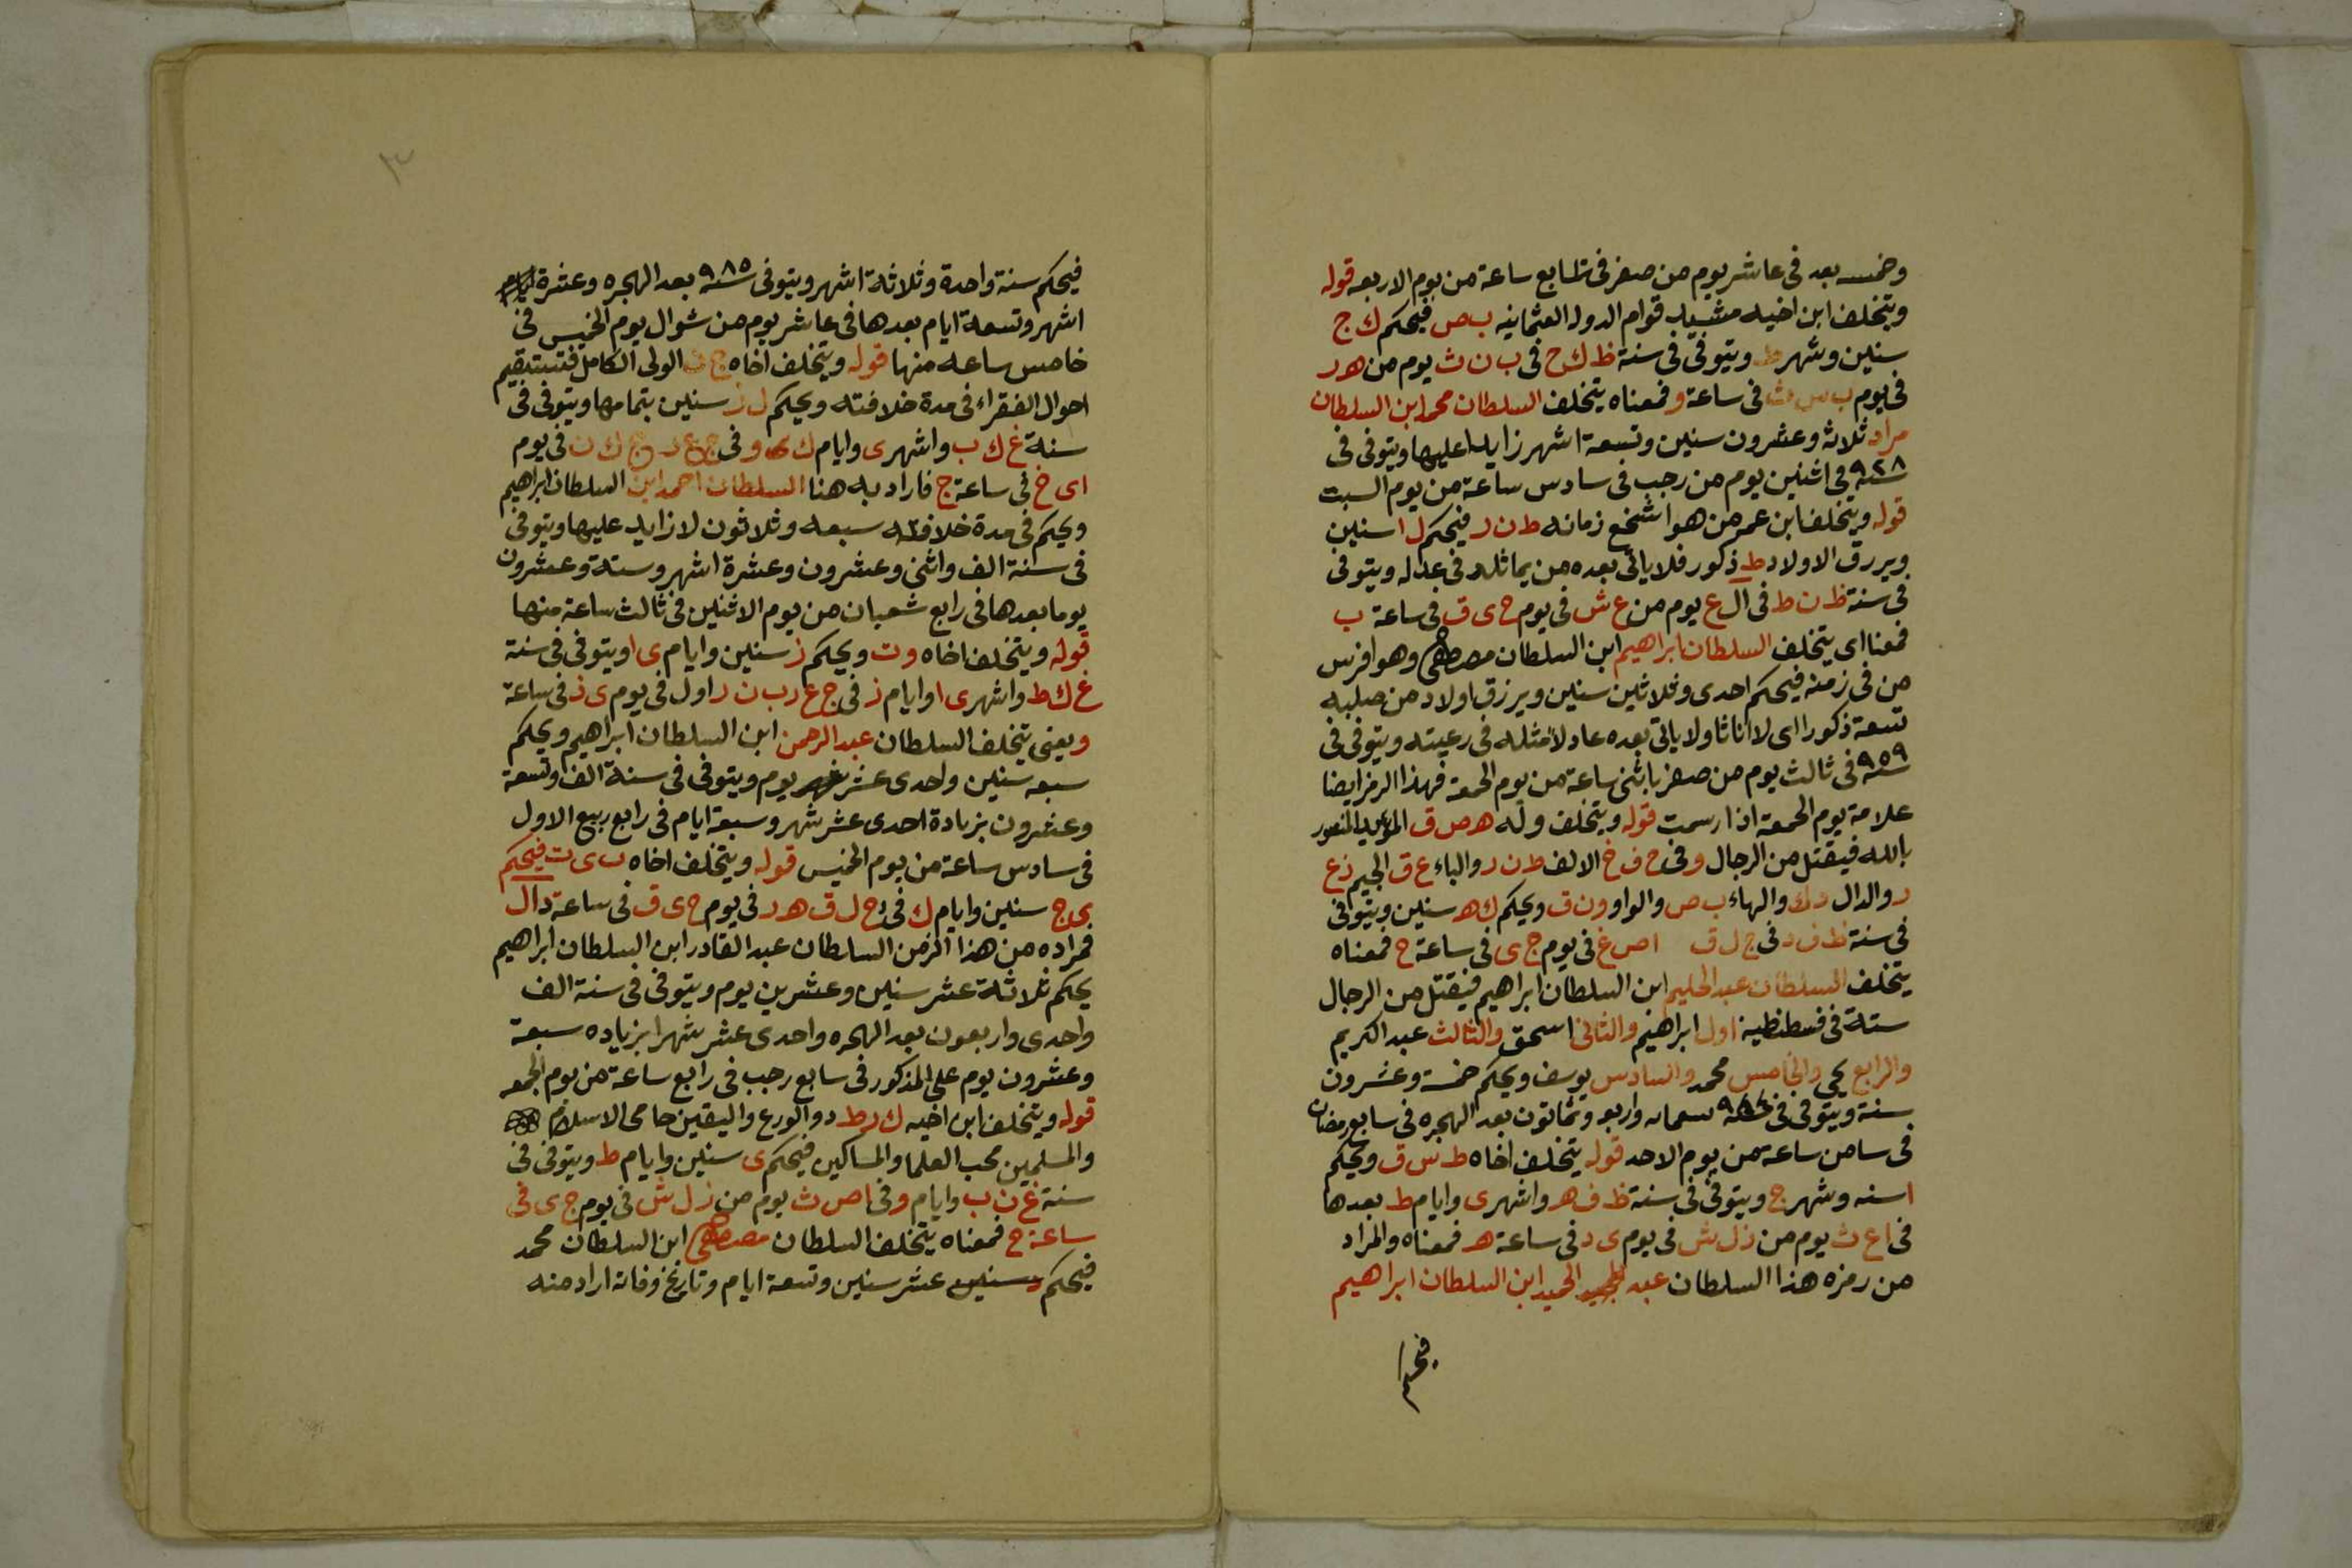 وخمسه بعد فى عاشر يوم من صفر فى سابع ساعة من يوم الاربعه قوله
ويتخلف ابن اخيه مشيد قوام الدوله العثمانيه ب ص فيحكم ك ج
سنين وشهر ط ويتوفى فى سنة ظ ك ح فى ب ن ث يوم من هـ ر
فى يوم ب س ث فى ساعة و فمعناه يتخلف السلطان محمد ابن السلطان
مراد ثلاثه وعشرون سنين وتسعة اشهر زايدا عليها ويتوفى فى
سنه ٩٢٨ فى اثنين يوم من رجب فى سادس ساعة من يوم السبت
قوله ويتخلف ابن عمر من هو اشخع زمانه ط ن ر فيحكم ل ا سنين
ويرزق الاولاد ط ذكور فلا ياتى بعده من يماثله فى عدله ويتوفى
فى سنة ظ ن ط فى ال ع يوم من ع ش فى يوم ح ى ق فى ساعة ب
فمعنا اى يتخلف السلطان ابراهيم ابن السلطان مصطفى وهو افرس
من فى زمنه فيحكم احدى وثلاثين سنين ويرزق اولاد من صلبه
تسعة ذكورا اى لا اناثا ولا ياتى بعده عادلا مثله فى رعيته ويتوفى فى
سنه ٩٥٩ فى ثالث يوم من صفر باثنى ساعة من يوم الجمعة فهذا الرمز ايضا
علامة يوم الجمعة اذا رسمت قوله ويتخلف وله هـ ص ق المؤيد المنصور
بالله فيقتل من الرجال و فى ح ف خ الالف ط ن ر والباء ع ق الجيم ذ ع
ر والدال د ك والهاء ب ص والواو و ن ق ويحكم ك هـ سنين ويتوفى
فى سنة ظ ف د فى ج ل ق ا ص غ فى يوم ج ى فى ساعة ح فمعناه
يتخلف السلطان عبد الحليم ابن السلطان ابراهيم فيقتل من الرجال
ستة فى قسطنطنية اول ابراهيم والثانى اسحق والثالث عبد الكريم
والرابع يحيى والخامس محمد والسادس يوسف ويحكم خمسة وعشرون
سنة ويتوفى فى سنه ٩٨٤ تسعمائه واربع وثمانون بعد الهجره فى سابع رمضان
فى سامن ساعة من يوم الاحد قوله يتخلف اخاه ط س ق ويحكم
ا سنه وشهر ج ويتوفى فى سنة ظ ف هـ واشهر ى وايام ط بعدها
فى ا ع ث يوم من ذ ل ش فى يوم ى د فى ساعة هـ فمعناه والمراد
من رمزه هذا السلطان عبد الحميد ابن السلطان ابراهيم
فيحكم
٣
فيحكم سنة واحدة وثلاثة اشهر ويتوفى سنه ٩٨٥ بعد الهجره وعشرة
اشهر وتسعة ايام بعدها فى عاشر يوم من شوال يوم الخميس فى
خامس ساعه منها قوله ويتخلف اخاه ج ث الولى الكامل فتستقيم
احوال الفقراء فى مدة خلافته ويحكم ل ز سنين بتمامها ويتوفى فى
سنة غ ك ب واشهر ى وايام ك و فى ج ع د ج ك ن فى يوم
اى خ فى ساعة ج فاراد به هنا السلطان احمد ابن السلطان ابراهيم
ويحكم فى مدة خلافته سبعه وثلاثون لا زايد عليها ويتوفى
فى سنة الف واثنى وعشرون وعشرة اشهر وستة وعشرون
يوما بعدها فى رابع شعبان من يوم الاثنين فى ثالث ساعة منها
قوله ويتخلف اخاه و ت ويحكم ز سنين وايام ى ا ويتوفى فى سنة
غ ك ط واشهر ى ا وايام ز فى ج ع ر ب ن ر اول فى يوم ى ذ فى ساعة
و يعنى يتخلف السلطان عبد الرحمن ابن السلطان ابراهيم ويحكم
سبعه سنين واحدى عشر يوم ويتوفى فى سنة الف وتسعة
وعشرون بزيادة احدى عشر شهر وسبعة ايام فى رابع ربيع الاول
فى سادس ساعة من يوم الخميس قوله ويتخلف اخاه ب ى ت فيحكم
ى ج سنين وايام ك فى ز ح ل ق هـ ر فى يوم ح ى ق فى ساعة دال
فمراده من هذا الرمز السلطان عبد القادر ابن السلطان ابراهيم
يحكم ثلاثة عشر سنين وعشرين يوم ويتوفى فى سنة الف
واحدى واربعون بعد الهجره واحدى عشر شهرا بزياده سبعة
وعشرون يوم على المذكور فى سابع رجب فى رابع ساعة من يوم الجمعه
قوله ويتخلف ابن اخيه ك ر ط ذو الورع واليقين حامى الاسلام
والمسلمين محب العلما والمساكين فيحكم ى سنين وايام ط ويتوفى فى
سنة غ ن ب وايام و فى ا ص ث يوم من ذ ل ش فى يوم ج ى فى
ساعة ح فمعناه يتخلف السلطان مصطفى ابن السلطان محمد
فيحكم عشر سنين وتسعة ايام وتاريخ وفاته اراد منه